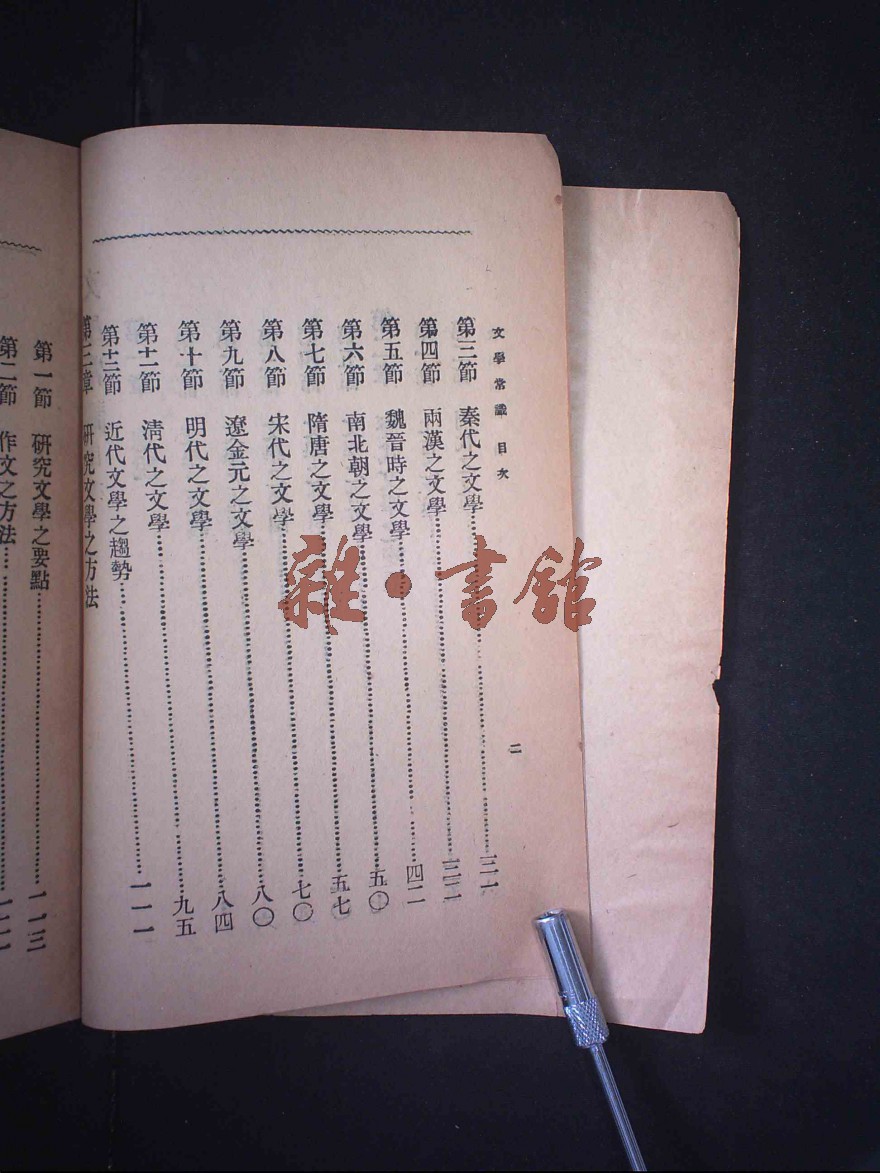 文學常識 目次
二
第三節 秦代之文學……三一
第四節 兩漢之文學……三二
第五節 魏晉時之文學……四二
第六節 南北朝之文學……五〇
第七節 隋唐之文學……五七
第八節 宋代之文學……七〇
第九節 遼金元之文學……八〇
第十節 明代之文學……八四
第十一節 淸代之文學……九五
第十二節 近代文學之趨勢……一一一
第三章 研究文學之方法
第一節 研究文學之要點……一一三
第二節 作文之方法……
雜·書館